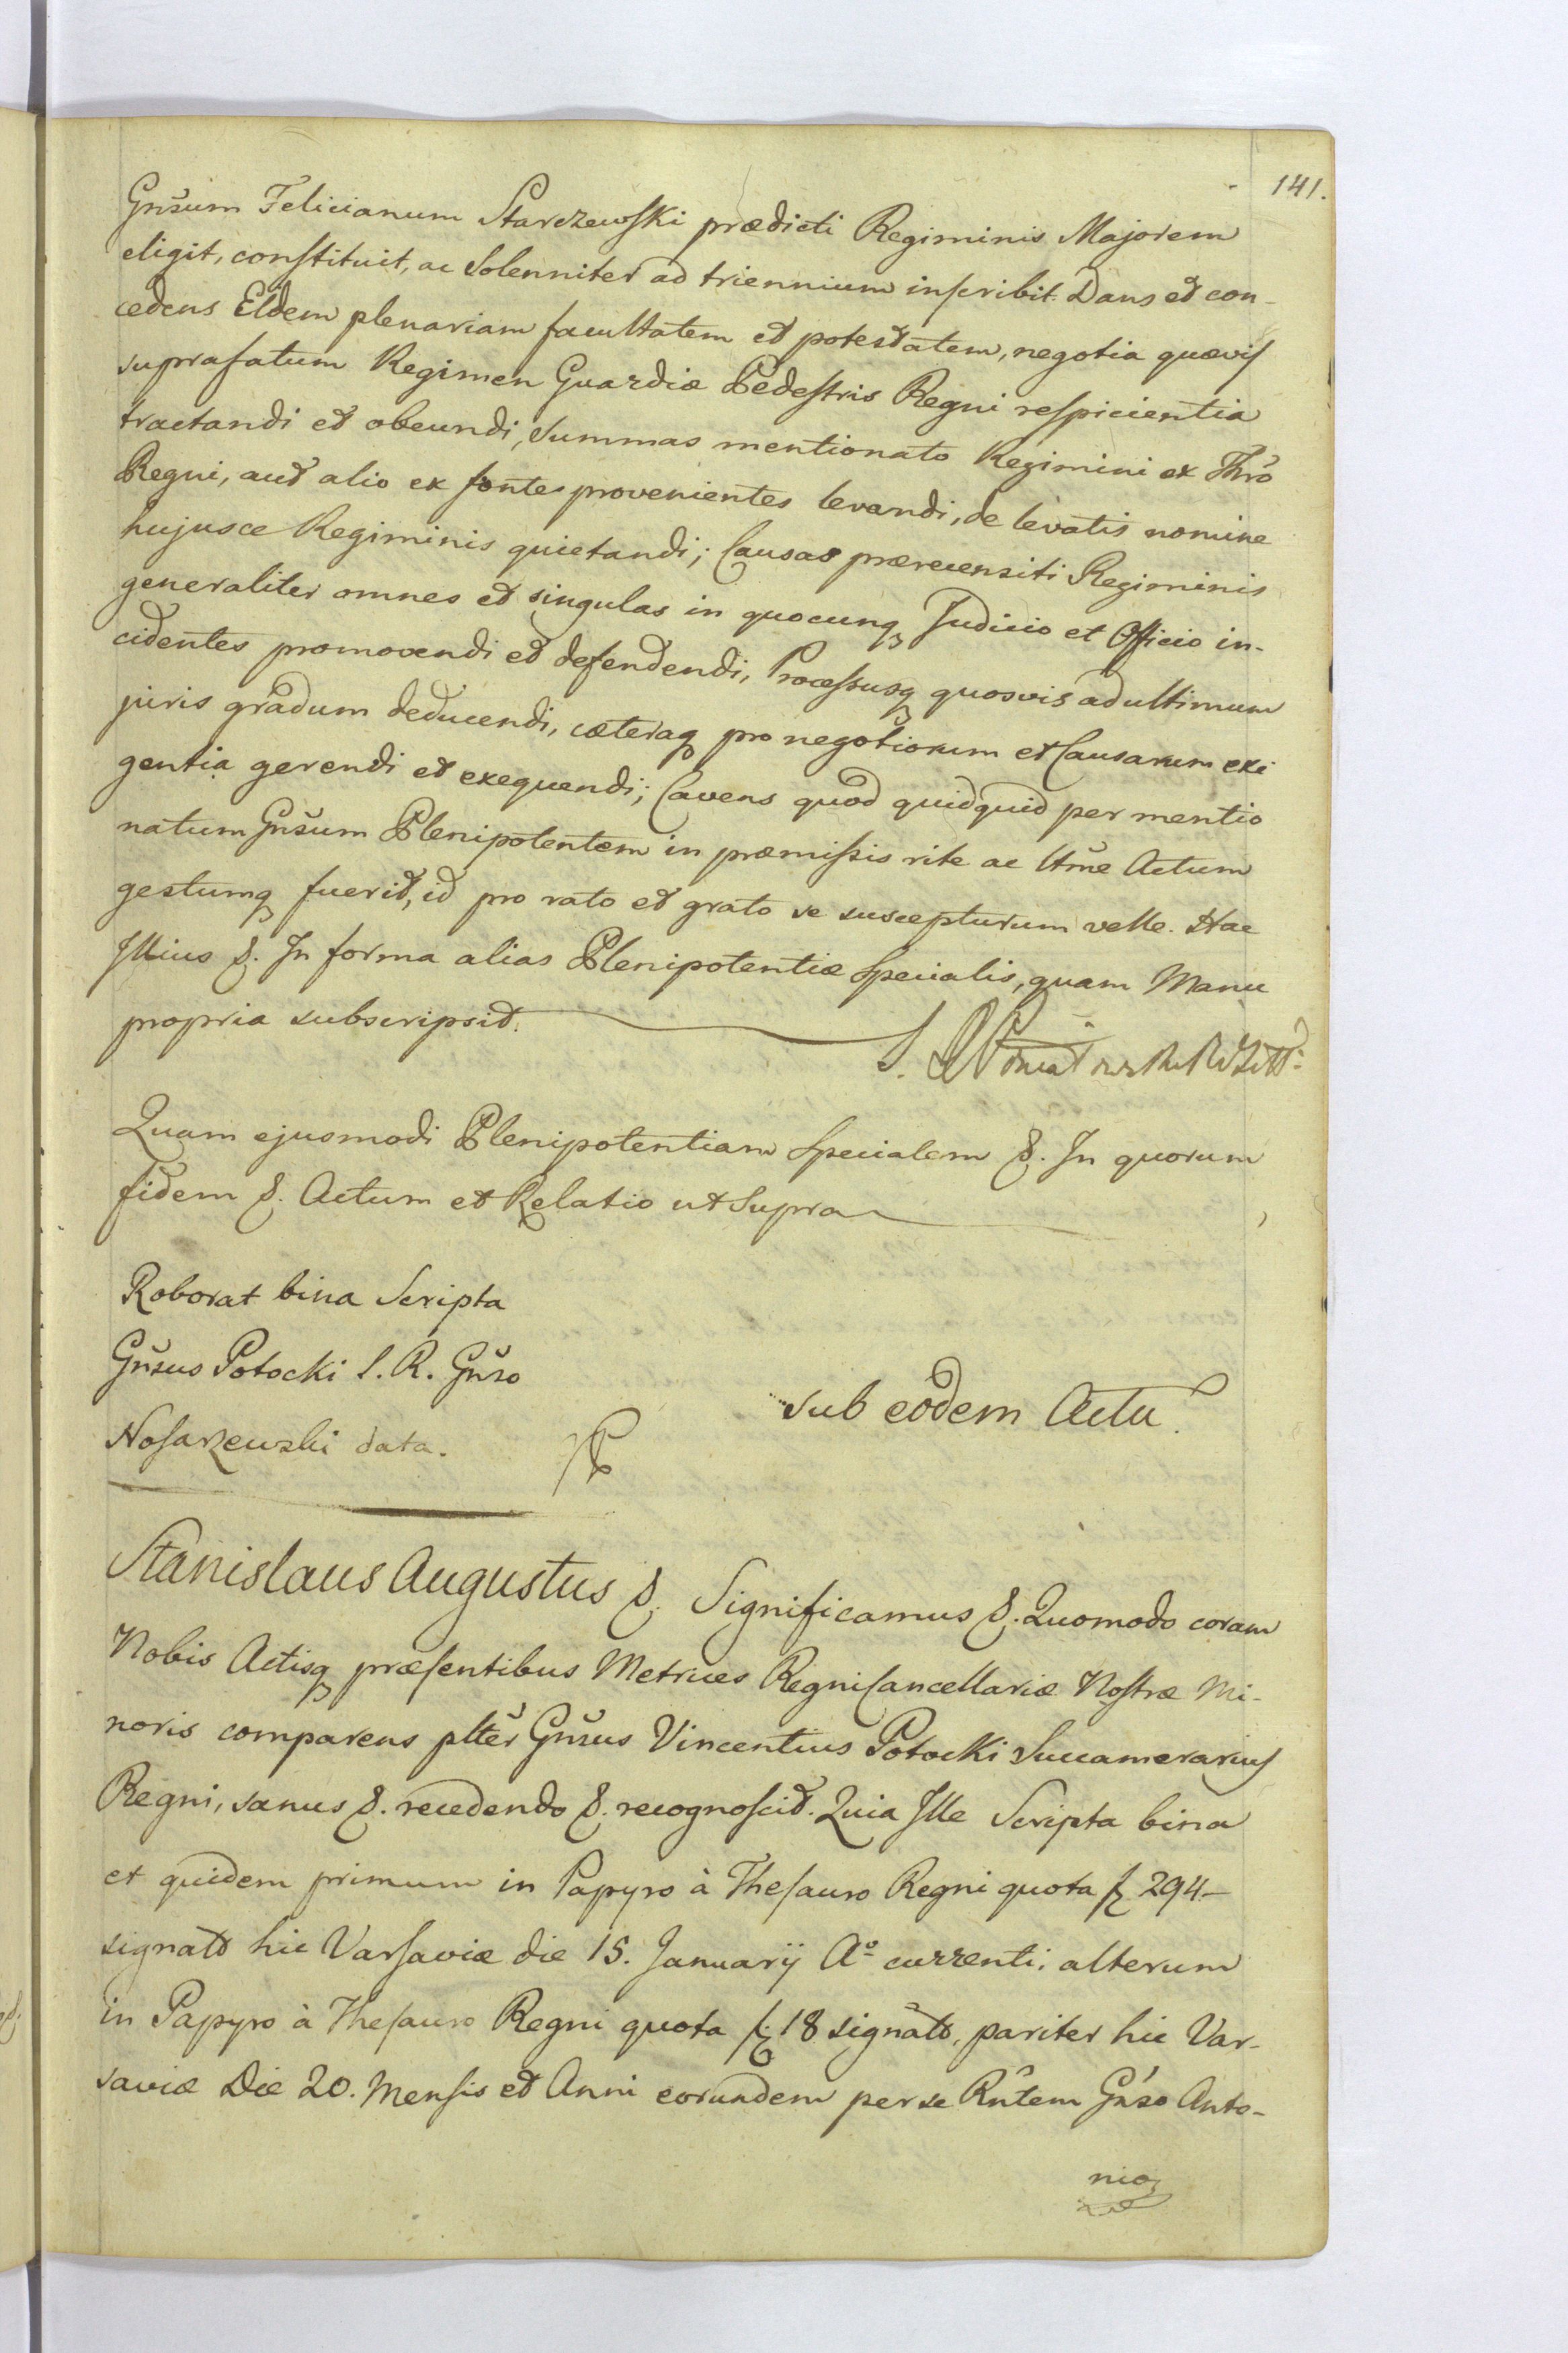 141.
Gnŝum Felicianum Starczewski prædicti Regiminis Majorem
eligit, constituit, ac Solenniter ad triennium inscribit. Dans et con-
cedens Eidem plenariam facultatem et potestatem, negotia quævis
suprafatum Regimen Guardiæ Pedestris Regni respicientia
tractandi et obeundi, summas mentionato Regimini ex Thrō
Regni, aut alio ex fonte provenientes levandi, de levatis nomine
hujusce Regiminis quietandi; Causas prærecensiti Regiminis
generaliter omnes et singulas in quocunq Judicio et Officio in-
cidentes promovendi et defendendi, Processusq quosvis ad ultimum
juris gradum deducendi, cæteraq pro negotiorum et Causarum exi
gentia gerendi et exequendi; Cavens quod quidquid per mentio
natum Gnŝum Plenipotentem in præmissis rite ac ltme Actum
gestumq fuerit, id pro rato et grato se suscepturum velle. Hac
Illius &. In forma alias Plenipotentiæ Specialis, quam Manu
propria subscripsit.
Quam ejusmodi Plenipotentiam Specialem &. In quorum
fidem &. Actum et Relatio ut Supra
Roborat bina Scripta
Gnŝus Potocki S. R. Gnŝo
Nosarzewski data.
sub eodem Actu.
Stanislaus Augustus &. Significamus &. Quomodo coram
Nobis Actisq præsentibus Metrices Regni Cancellariæ Nostræ Mi-
noris comparens pltēr Gnŝus Vincentius Potocki Succamerarius
Regni, sanus &. recedendo &. recognoscit. Quia Ille Scripta bina
et quidem primum in Papyro à Thesauro Regni quota fl 294-
signato hic Varsaviæ die 15. Januarÿ Aº currenti, alterum
in Papyro à Thesauro Regni quota fl 18 signato, pariter hic Var-
saviæ Die 20. Mensis et Anni eorundem per se Rñtem Gnŝo Anto-
nio